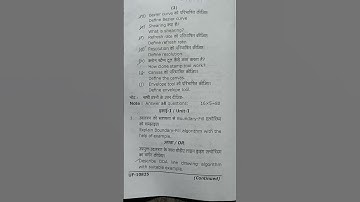 (3)
Bezier curve को परिभाषित कीजिए।
Define Bezier curve.
(e) Shearing क्या है?
What is shearing?
Refresh rate को परिभाषित कीजिए।
Define refresh rate.
Resolution को परिभाषित कीजिए।
Define resolution.
क्लोन स्टैम्प टूल कैसे कार्य करता है?
How clone stamp tool work?
Canvas को परिभाषित कीजिए।
Define the canvas.
Envelope tool को परिभाषित कीजिए।
Define envelope tool.
नोट : सभी प्रश्नों के उत्तर दीजिए।
Note : Answer all questions. 16×5=80
इकाई-I / Unit-I
उदाहरण की सहायता से Boundary-Fill एल्गोरिथ्म को समझाइए।
Explain Boundary-Fill algorithm with the help of example.
अथवा / OR
उपयुक्त उदाहरण के साथ डीडीए लाइन ड्राइंग एल्गोरिथ्म का वर्णन कीजिए।
Describe DDA line drawing algorithm with suitable example.
(Continued)